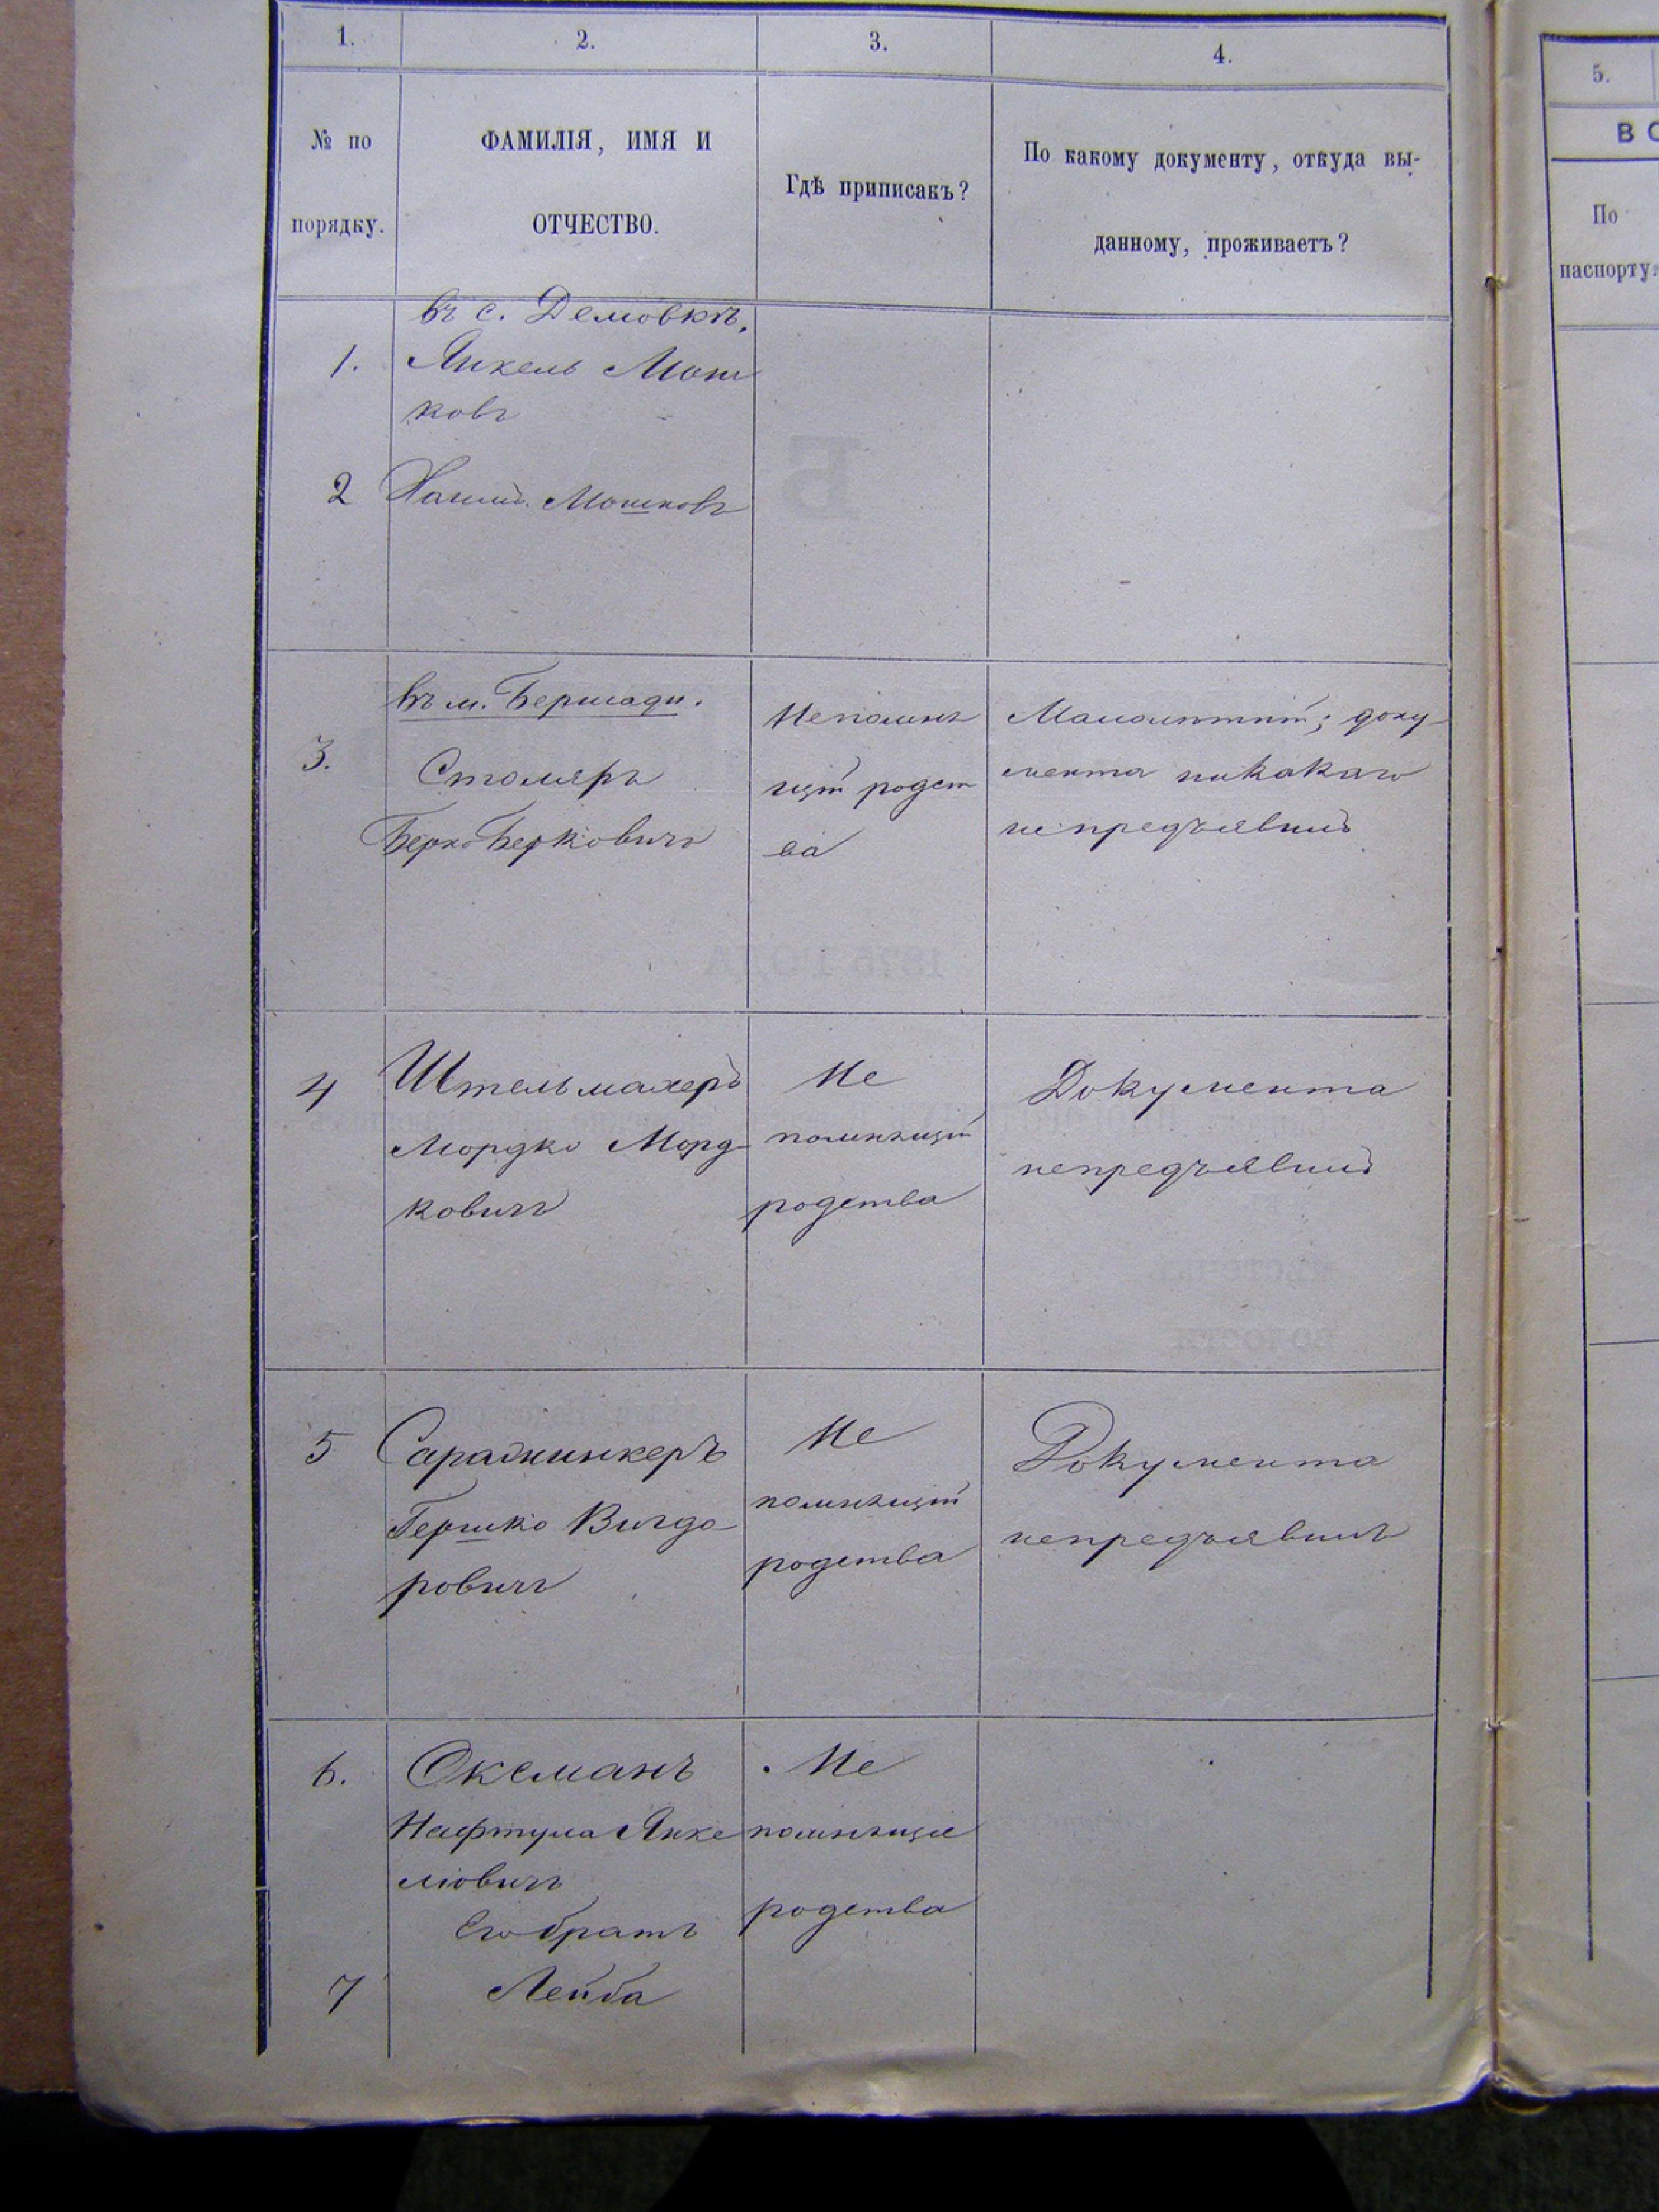 1.
2.
3.
4.
№ по
порядку.
ФАМИЛІЯ, ИМЯ И
ОТЧЕСТВО.
Гдѣ приписанъ?
По какому документу, откуда вы-
данному, проживаетъ?
въ с. Демовкѣ.
1.
Янкель Мош
ковъ
2
Мошковъ
въ м. Бершади.
3.
Столяръ
Берко Берковичъ
Непомня
щій родст
ва
Малолѣтній; доку
мента никакого
непредъявилъ
4
Штельмахеръ
Мордко Морд
ковичъ
Не
помнящій
родства
Документа
непредъявилъ
5
Саражинкеръ
Гершко Вигдо
ровичъ
Не
помнящій
родства
Документа
непредъявилъ
6.
Оксманъ
Нафтула Янке
ліовичъ
Его братъ
Не
помнящіе
родства
7
Лейба
5.
В С
По
паспорту.